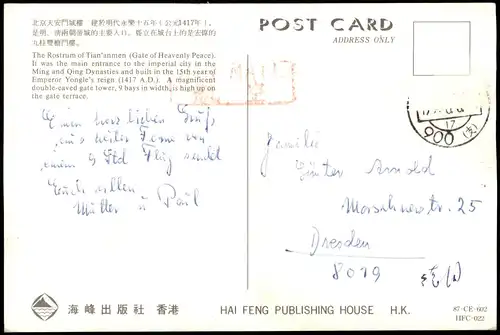 北京天安門城樓 建於明代永樂十五年(公元1417年),
是明、清兩朝皇城的主要入口。聳立在城台上的是宏偉的
九柱雙檐門樓。
The Rostrum of Tian'anmen (Gate of Heavenly Peace).
It was the main entrance to the imperial city in the
Ming and Qing Dynasties and built in the 15th year of
Emperor Yongle's reign (1417 A.D.). A magnificent
double-eaved gate tower, 9 bays in width, is high up on
the gate terrace.
Einen herzlichen Gruß
aus weiter Ferne von
einem 9 Std Flug sendet
Euch allen
Mutter u Paul
POST CARD
ADDRESS ONLY
17
900 (支)
Familie
Günter Arnold
25
Dresden
8019
海峰出版社 香港
HAI FENG PUBLISHING HOUSE H.K.
87-CE-602
HFC-022